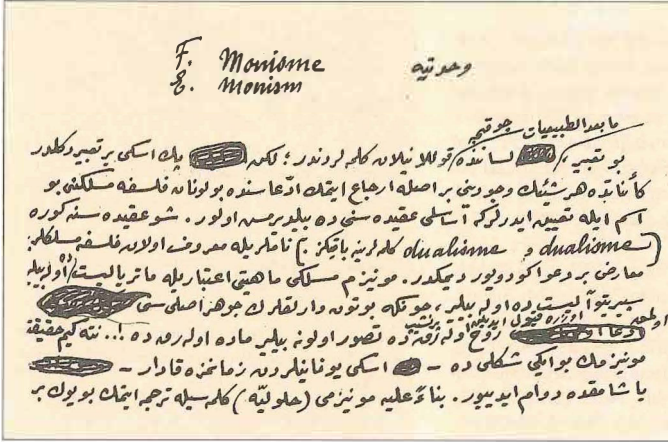 F. Monisme
E. Monism
وحدتيه
ما بعد الطبيعيات جوقجه
بو تعبير، لسانندە قوللانيلان كلمه لردندر؛ لكن پك اسكى بر تعبير دكلدر
كأناتده هر شيئك وجودينى بر اصله ارجاع ايتمك ادّعاسنده بولونان فلسفه مسلكنى بو
اسم ايله تعيين ايدرلركه آساسلى عقيده سنى ده بيلديرمش اولور. شو عقيده سنه كوره
(dualisme و dualisme كلمه لرينه باقيكز) ناملريله معروف اولان فلسفه مسلكلرينه
معارض بر دعوا كودويور ديمكدر. مونيزم مسلكى ماهيتى اعتباريله ماترياليست ده اوله بيلير
سپريتوآليست ده اوله بيلير، چونكه بوتون وارلقلرك جوهر اصلى سى
اولمق اوزره قبول ايديلن پرنسيپ
روح اوله رق ده تصور اولونه بيلير ماده اوله رق ده!.. نته كيم حقيقة
مونيزمك بو ايكى شكلى ده - اسكى يونانيلردن زمانمزه قادار -
ياشامقده دوام ايدييور. بناءً عليه مونيزمى (حلوليّه) كلمه سيله ترجمه ايتمك بويوك بر